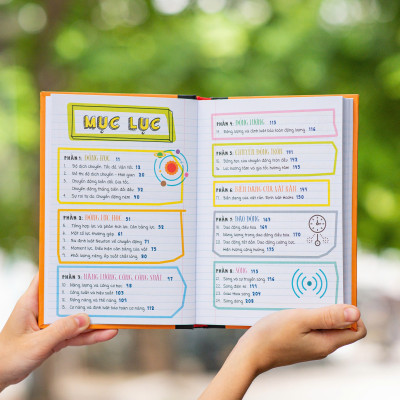 MỤC LỤC
PHẦN 1: ĐỘNG HỌC 11
1. Độ dịch chuyển. Tốc độ. Vận tốc 12
2. Đồ thị độ dịch chuyển - thời gian 20
3. Chuyển động biến đổi. Gia tốc.
Chuyển động thẳng biến đổi đều
4. Sự rơi tự do. Chuyển động ném 40
PHẦN 2: ĐỘNG LỰC HỌC 51
5. Tổng hợp lực và phân tích lực. Cân bằng lực 52
6. Một số lực thường gặp 61
7. Ba định luật Newton về chuyển động 71
8. Moment lực. Điều kiện cân bằng của vật
9. Khối lượng riêng, áp suất chất lỏng
PHẦN 3: NĂNG LƯỢNG, CÔNG, CÔNG SUẤT 97
10. Năng lượng và công cơ học 98
11. Công suất và hiệu suất 103
12. Động năng và thế năng
13. Cơ năng và định luật bảo toàn cơ năng 112
PHẦN 4: ĐỘNG LƯỢNG 115
14. Động lượng và định luật bảo toàn động lượng 116
PHẦN 5: CHUYỂN ĐỘNG TRÒN
15. Động học của chuyển động tròn đều
16. Lực hướng tâm và gia tốc hướng tâm
PHẦN 6: BIẾN DẠNG CỦA VẬT RẮN
17. Biến dạng của vật rắn. Định luật Hooke
PHẦN 7: DAO ĐỘNG 163
18. Dao động điều hòa 164
19. Năng lượng trong dao động điều hòa
20. Dao động tắt dần. Dao động cưỡng bức.
Hiện tượng cộng hưởng
PHẦN 8: SÓNG 193
21. Sóng và sự truyền sóng
22. Sóng điện từ 199
23. Giao thoa sóng 204
24. Sóng dừng 208